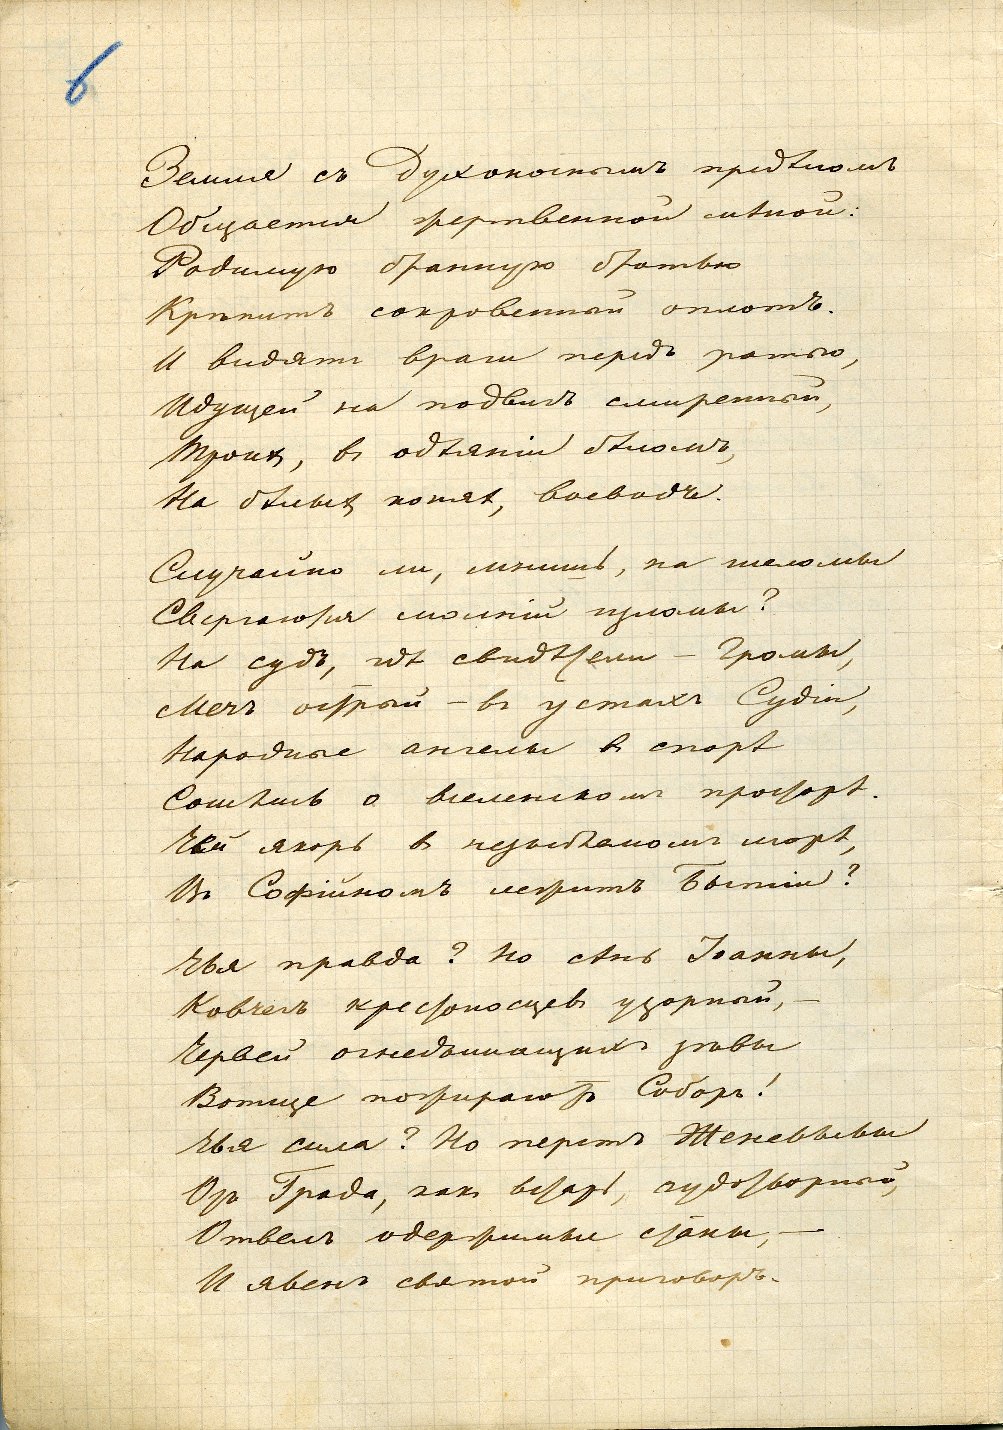 6
Земля съ Духоноснымъ предѣломъ
Общается жертвенной мѣной:
Родимую бранную братью
Крѣпитъ сокровенный оплотъ.
И видятъ враги передъ ратью,
Идущей на подвигъ смиренный,
Троихъ, въ одѣяніи бѣломъ,
На бѣлыхъ коняхъ, воеводъ.
Случайно ли, мнишь, на шеломы
Свергаются молній изломы?
На судъ, гдѣ свидѣтели – Громы,
Мечъ острый – въ устахъ Судіи,
Народные ангелы въ спорѣ
Сошлись о вселенскомъ просторѣ.
Чей якорь въ незыблемомъ морѣ,
Въ Софійномъ лежитъ Бытіи?
Чья правда? Но сѣнь Іоанны,
Ковчегъ крестоносцевъ узорный, –
Червей огнедышащихъ зѣвы
Вотще пожираютъ Соборъ!
Чья сила? Но перстъ Женевьевы
Отъ Града, какъ встарь, чудотворный,
Отвелъ одержимые станы, –
И явенъ святой приговоръ.